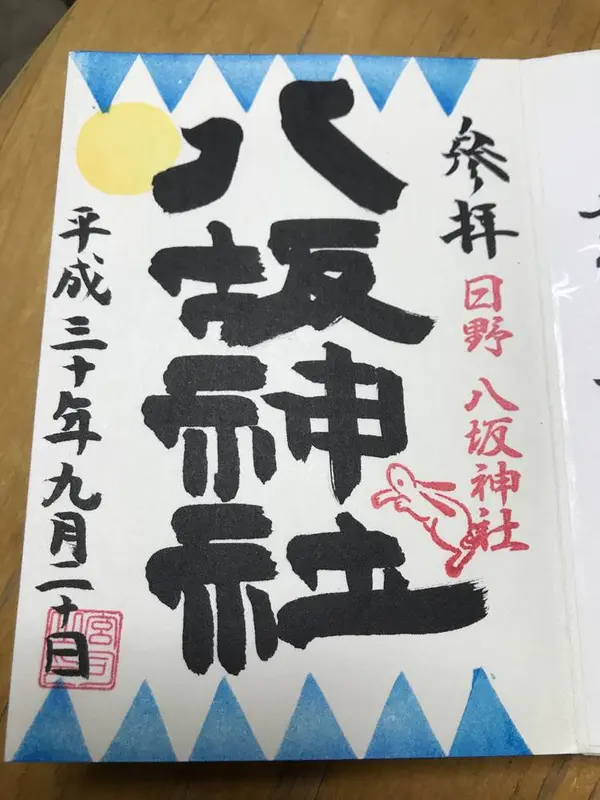 參拜
日野 八坂神社
八坂神社
平成三十年九月二十日